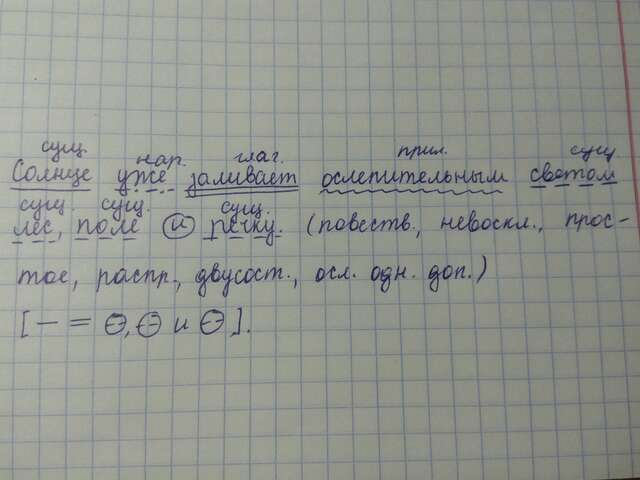 сущ. нар. глаг. прил. сущ.
Солнце уже заливает ослепительным светом
сущ. сущ. сущ.
лес, поле и речку. (повеств., невоскл., прос-
тое, распр., двусост., осл. одн. доп.)
[— = ⊖, ⊖ и ⊖].